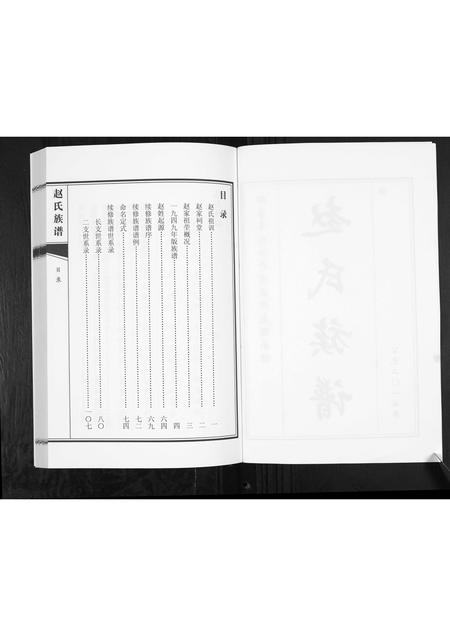 目录
赵氏祖训 一
赵家祠堂 二
赵家祖茔概况 三
一九四九年版族谱 四
赵姓起源 六四
续修族谱序 六九
续修族谱谱例 七二
命名定式 七四
续修族谱世系录
长支世系录 八〇
二支世系录 一〇七
赵氏族谱
目录
赵氏族谱